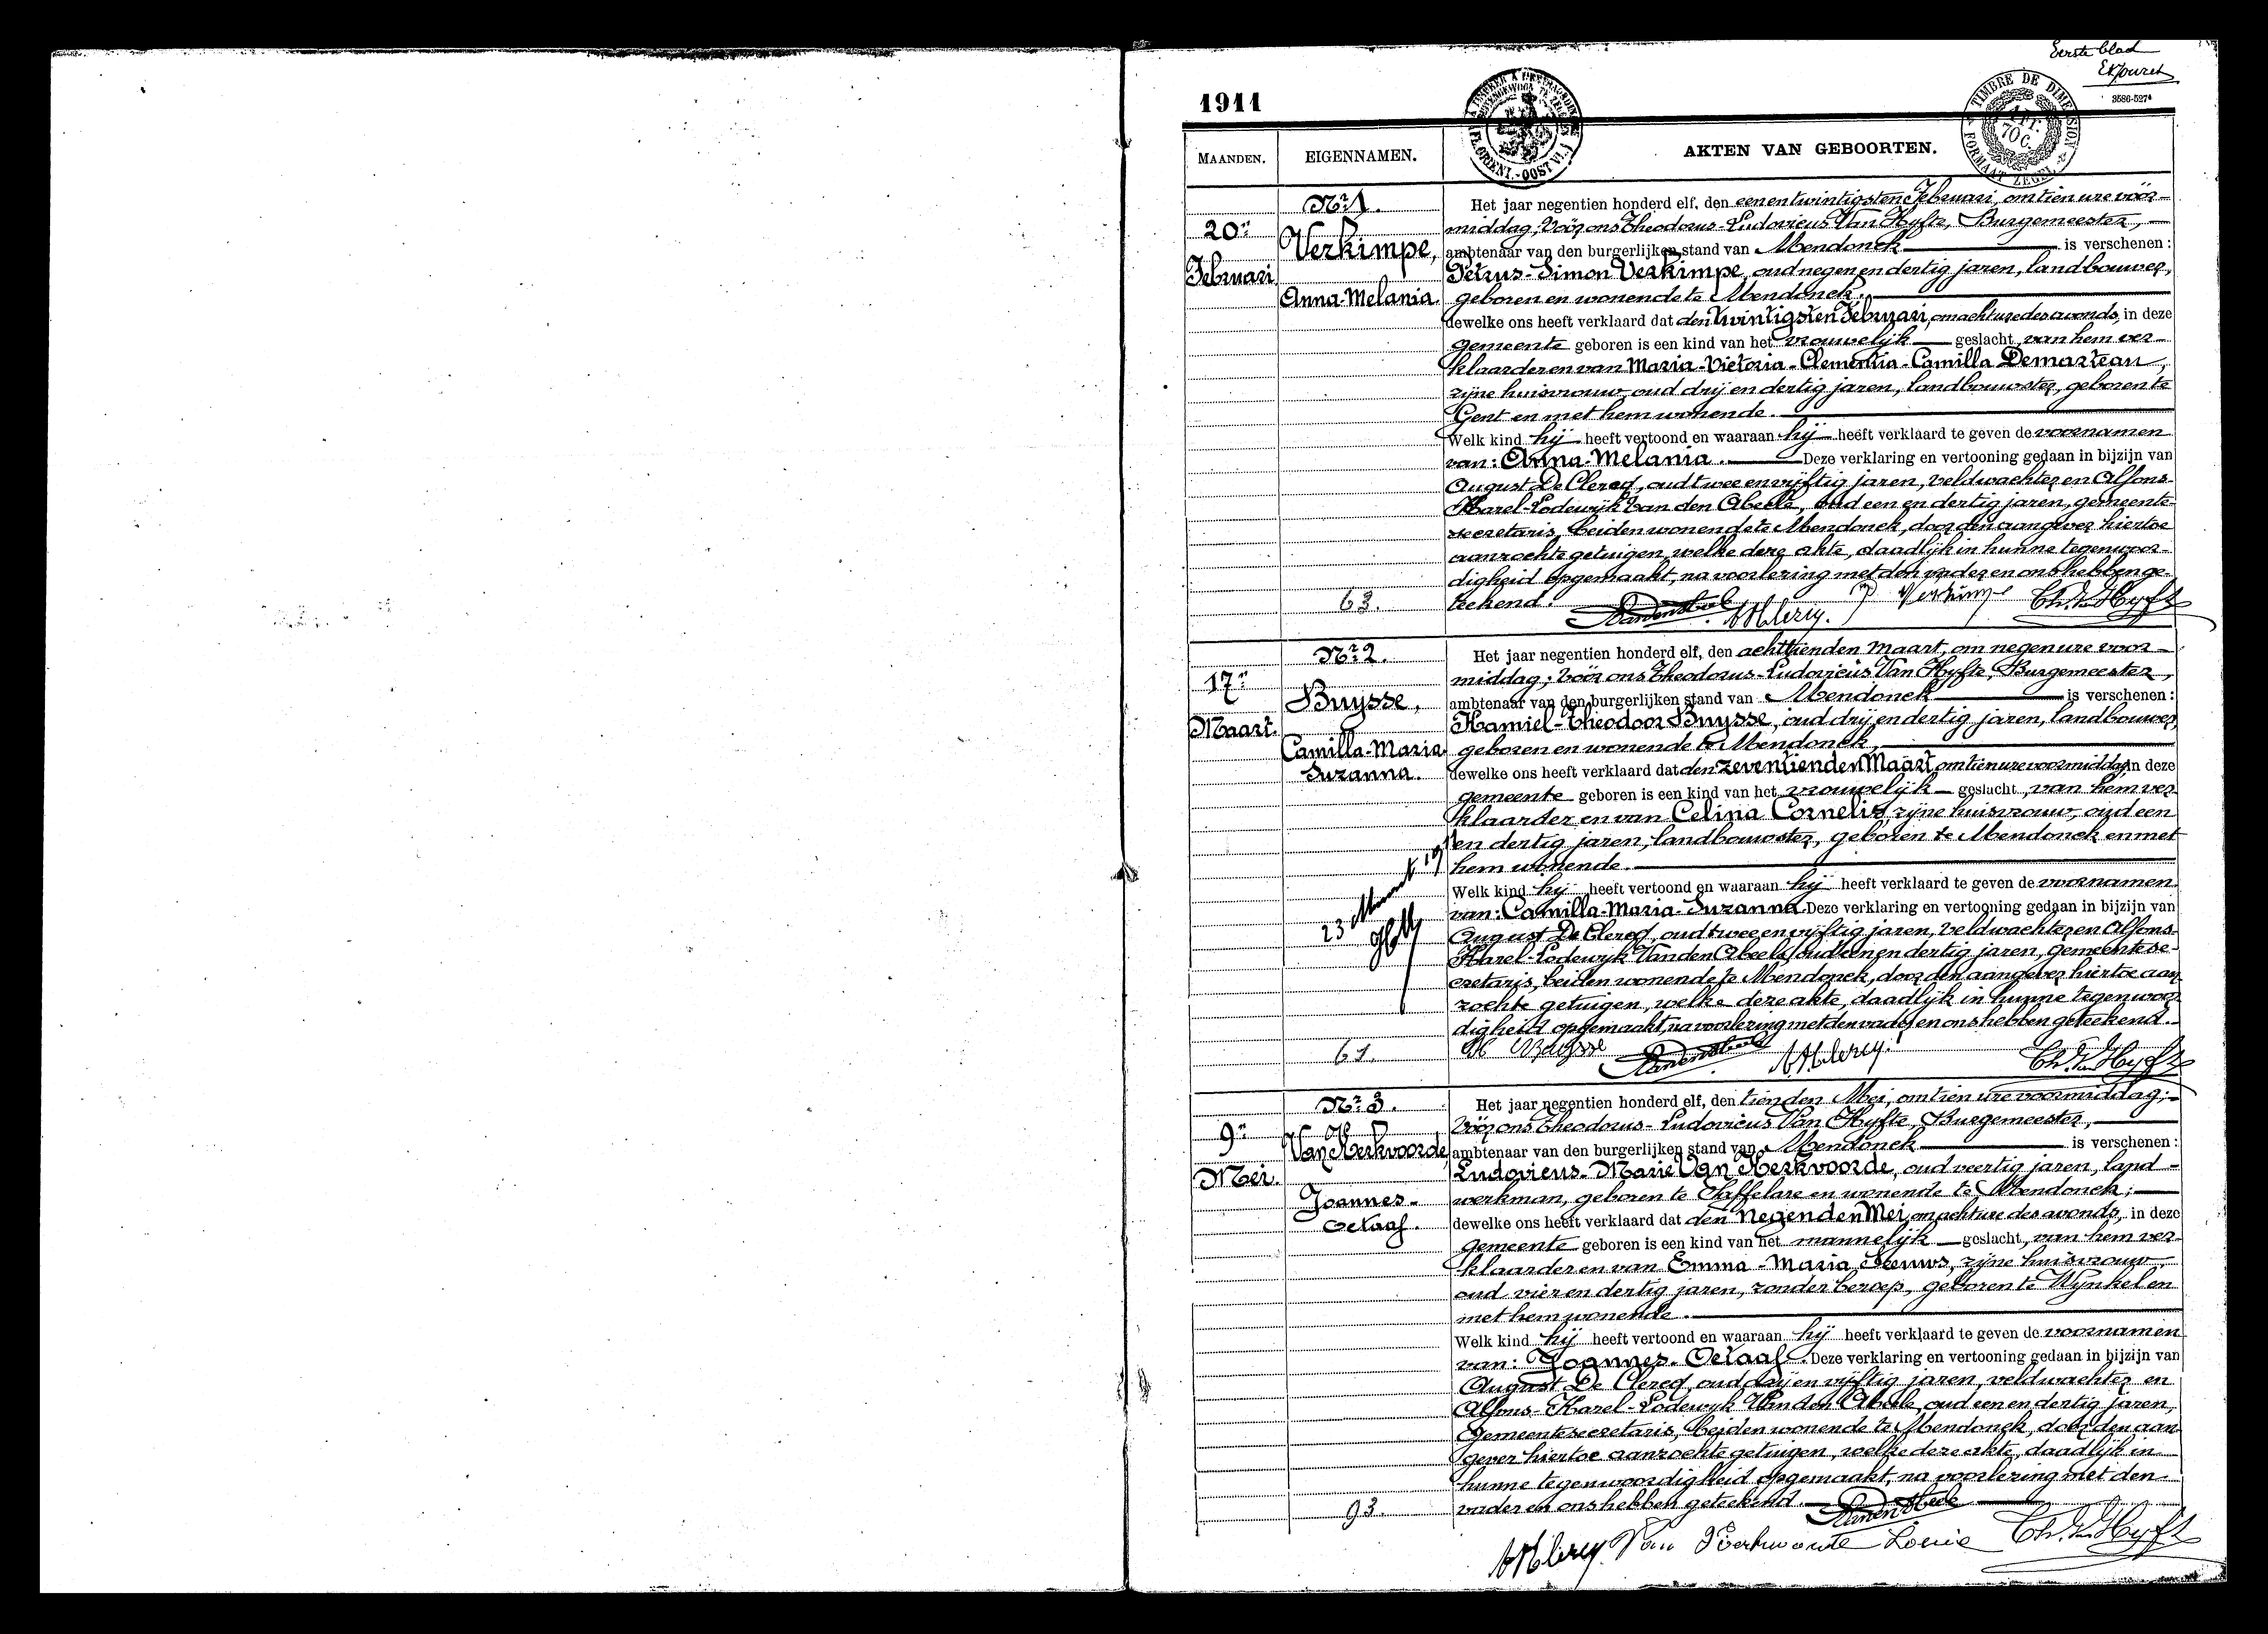 Eerste blad
1911
3586-5274
TIMBRE DE DIMENSION
FORMAAT ZEGEL
70 C.
(FL. ORIENT. - OOST VL.)
MAANDEN. EIGENNAMEN. AKTEN VAN GEBOORTEN.
Nr. 1.
20n
Februari
Verkimpe,
Anna-Melania.
Het jaar negentien honderd elf, den eenentwintigsten Februari, om tien ure vóór-
middag, vóór ons Theodorus-Ludovicus Van Hyfte, Burgemeester,
ambtenaar van den burgerlijken stand van Mendonck is verschenen:
Petrus-Simon Verkimpe, oud negen en dertig jaren, landbouwer,
geboren en wonende te Mendonck.
dewelke ons heeft verklaard dat den twintigsten Februari, om acht ure des avonds, in deze
gemeente geboren is een kind van het vrouwelijk geslacht, van hem ver-
klaarder en van Maria-Victoria-Clementia-Camilla Demarteau,
zijne huisvrouw, oud drij en dertig jaren, landbouwster, geboren te
Gent en met hem wonende.
Welk kind hij heeft vertoond en waaraan hij heeft verklaard te geven de voornamen
van: Anna-Melania. Deze verklaring en vertooning gedaan in bijzijn van
August De Clercq, oud twee en vijftig jaren, veldwachter en Alfons-
Karel-Lodewijk Van den Abeele, oud een en dertig jaren, gemeente-
secretaris, beiden wonende te Mendonck, door den aangever hiertoe
aanzochte getuigen, welke deze akte, daadlijk in hunne tegenwoor-
digheid opgemaakt, na voorlezing met den vader en ons hebben ge-
teekend.
63.
P Verkimpe
Th. Van Hyfte
Nr. 2.
17n
Maart.
Buysse,
Camilla-Maria
Suzanna.
Het jaar negentien honderd elf, den achttienden Maart, om negen ure voor-
middag; vóór ons Theodorus-Ludovicus Van Hyfte, Burgemeester,
ambtenaar van den burgerlijken stand van Mendonck is verschenen:
Kamiel-Theodoor Buysse, oud drij en dertig jaren, landbouwer,
geboren en wonende te Mendonck,
dewelke ons heeft verklaard dat den zeventienden Maart om tien ure voormiddag, in deze
gemeente geboren is een kind van het vrouwelijk geslacht, van hem ver-
klaarder en van Celina Cornelis, zijne huisvrouw, oud een
en dertig jaren, landbouwster, geboren te Mendonck en met
hem wonende.
Welk kind hij heeft vertoond en waaraan hij heeft verklaard te geven de voornamen
van: Camilla-Maria-Suzanna. Deze verklaring en vertooning gedaan in bijzijn van
August De Clercq, oud twee en vijftig jaren, veldwachter en Alfons-
Karel-Lodewyk Van den Abeele, oud een en dertig jaren, gemeentese-
cretaris, beiden wonende te Mendonck, door den aangever hiertoe aan-
zochte getuigen, welke deze akte, daadlijk in hunne tegenwoor-
digheid opgemaakt, na voorlezing met den vader en ons hebben geteekend.
61.
K Buysse
Th. Van Hyfte
Nr. 3.
9n
Mei.
Van Kerkvoorde
Joannes-
Octaaf.
Het jaar negentien honderd elf, den tienden Mei, om tien ure voormiddag;
vóór ons Theodorus-Ludovicus Van Hyfte, Burgemeester,
ambtenaar van den burgerlijken stand van Mendonck is verschenen:
Ludovicus-Marie Van Kerkvoorde, oud veertig jaren, land-
werkman, geboren te Saffelare en wonende te Mendonck;
dewelke ons heeft verklaard dat den negenden Mei, om acht ure des avonds, in deze
gemeente geboren is een kind van het mannelijk geslacht, van hem ver-
klaarder en van Emma-Maria Leeuws, zijne huisvrouw,
oud vier en dertig jaren, zonder beroep, geboren te Wynkel en
met hem wonende.
Welk kind hij heeft vertoond en waaraan hij heeft verklaard te geven de voornamen
van: Joannes-Octaaf. Deze verklaring en vertooning gedaan in bijzijn van
August De Clercq, oud drij en vijftig jaren, veldwachter en
Alfons-Karel-Lodewyk Van den Abeele, oud een en dertig jaren,
gemeentesecretaris, beiden wonende te Mendonck, door den aan-
gever hiertoe aanzochte getuigen, welke deze akte, daadlijk in
hunne tegenwoordigheid opgemaakt, na voorlezing met den
vader en ons hebben geteekend.
93.
Van Kerkvoorde Louie Th. Van Hyfte